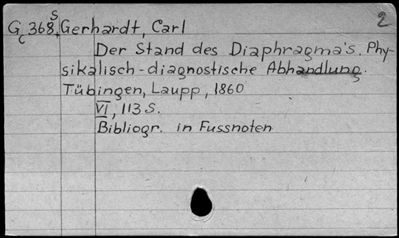 G c 368 s, Gerhardt, Carl 2
Der Stand des Diaphragma's. Phy-
sikalisch-diagnostische Abhandlung.
Tübingen, Laupp, 1860
VI, 113 S.
Bibliogr. in Fussnoten